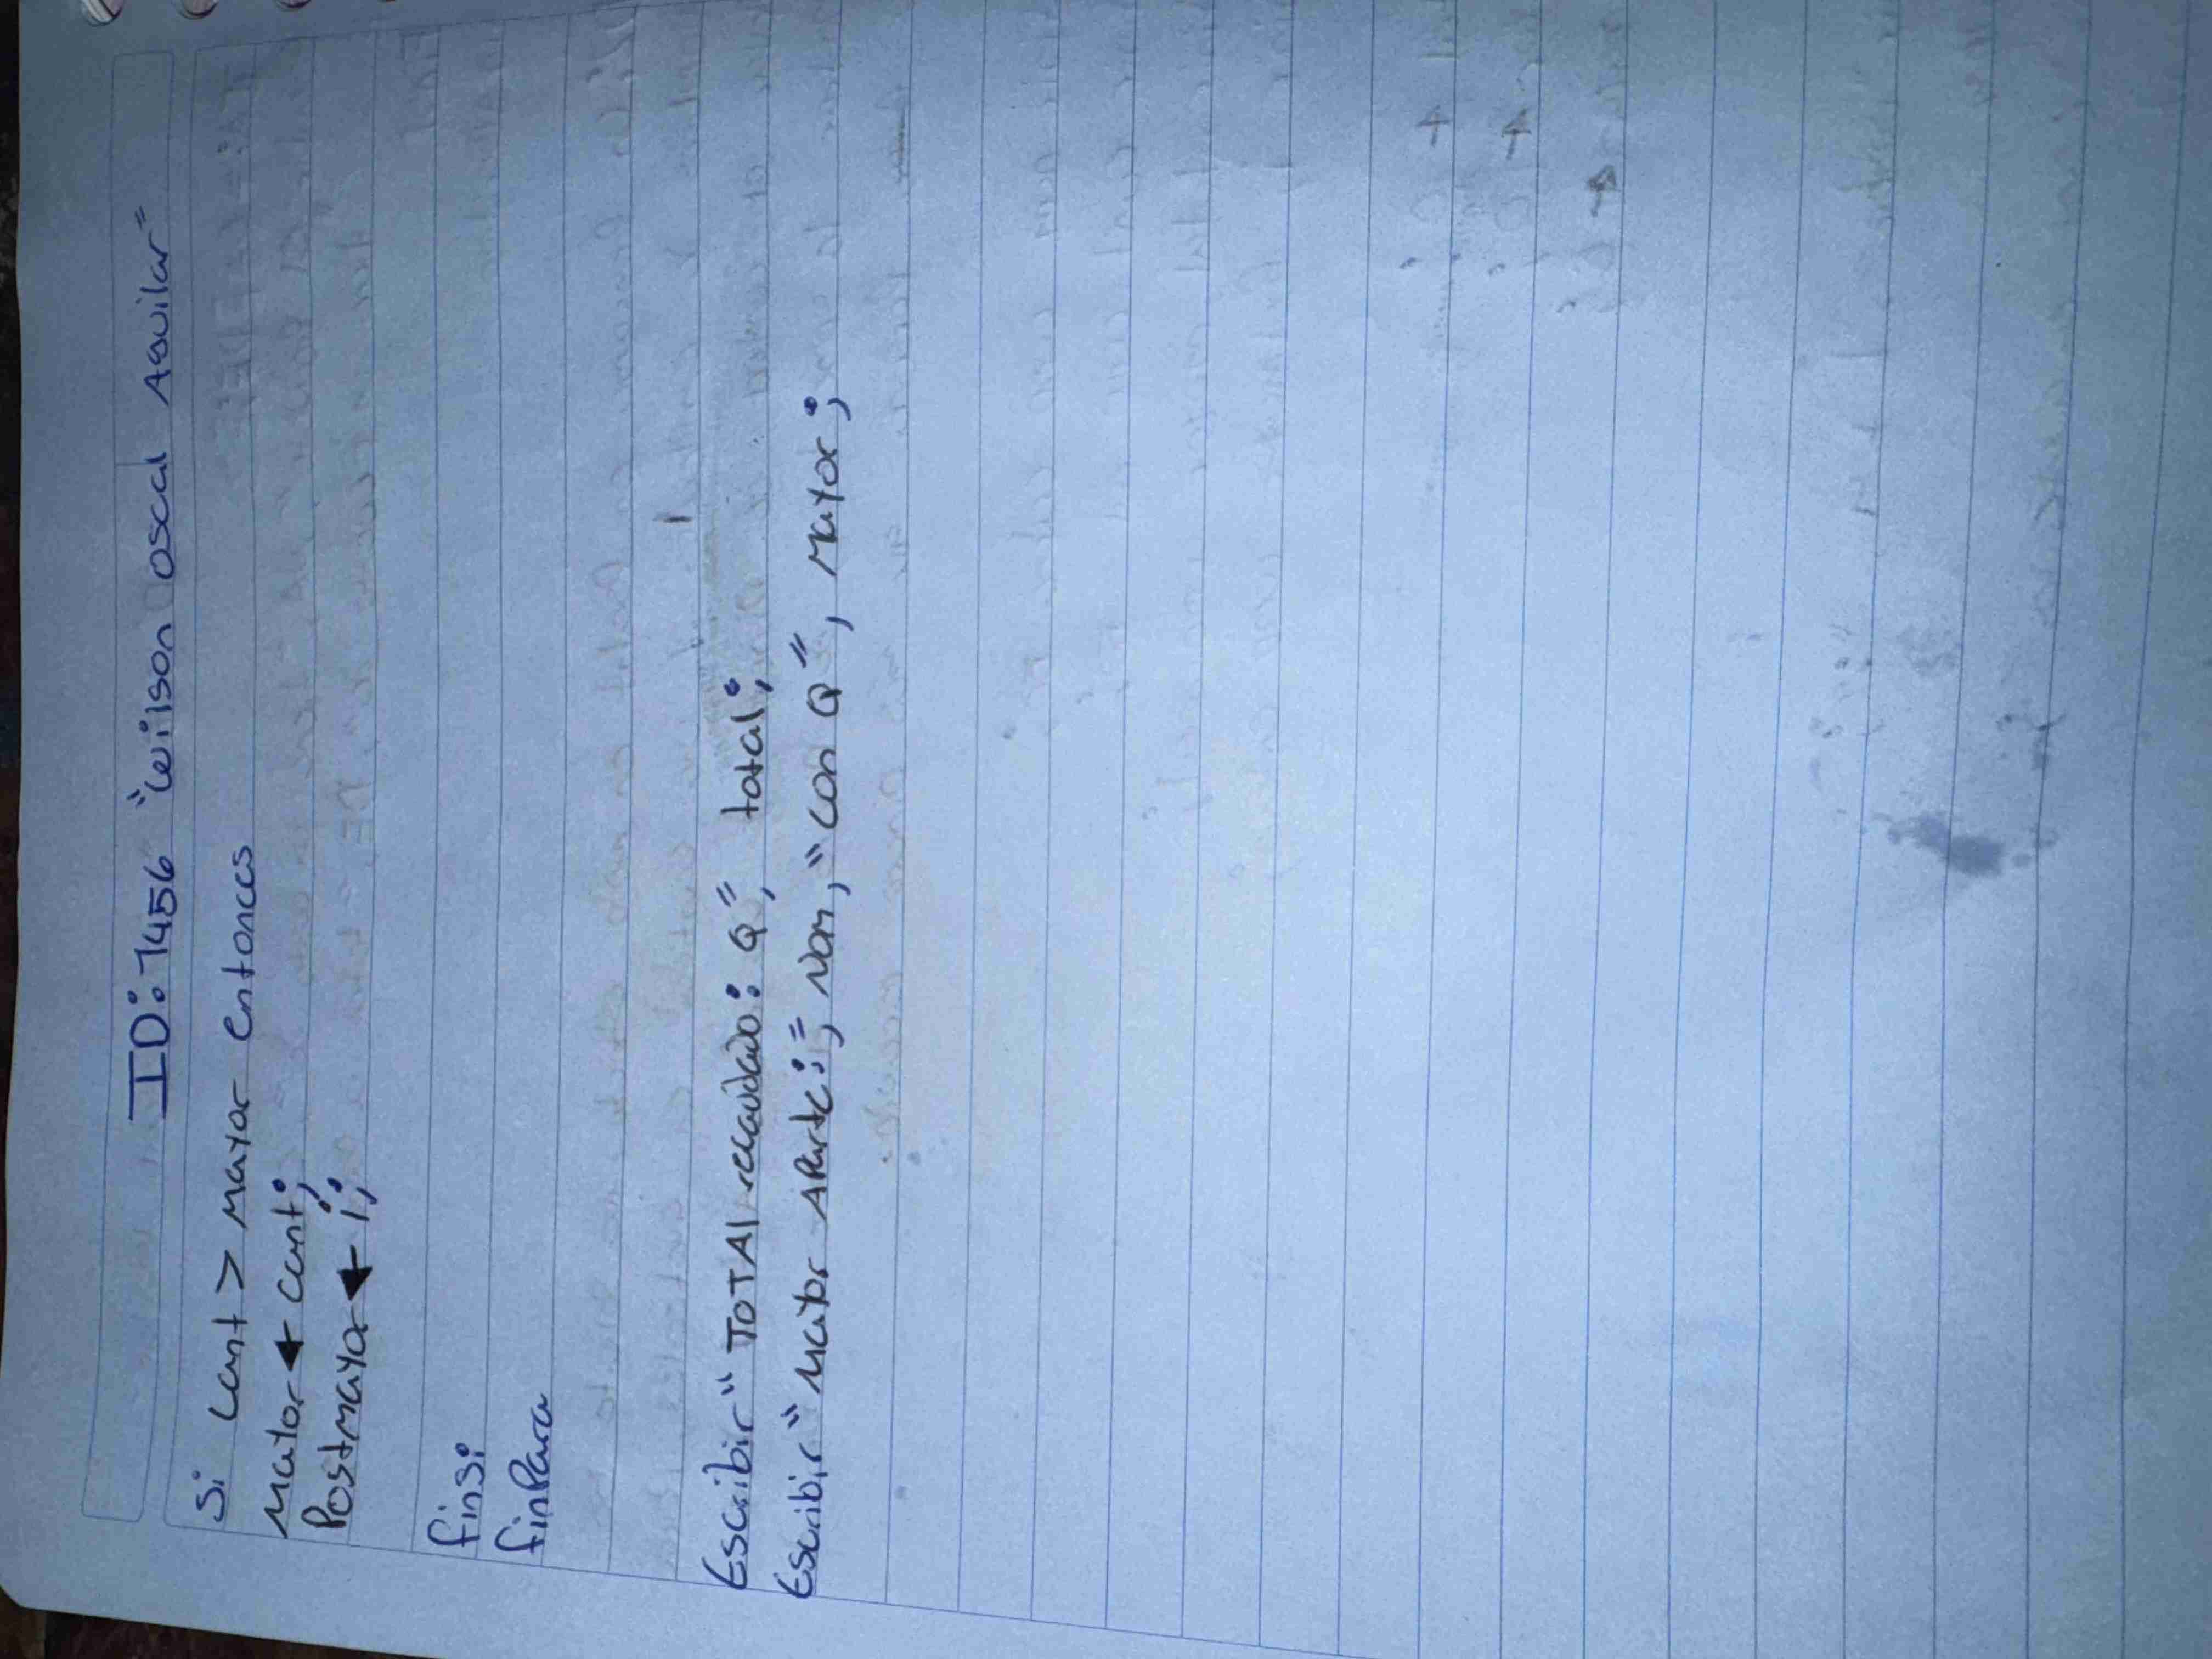 ID: 7456 "Wilson Oscal Aguilar"
Si cant > mayor entonces
Mayor ← cant;
Postmayor ← i;
finsi
finPara
Escribir "TOTAl recaudado: Q", total;
Escribir "Mayor Aparte:", Nom, "con Q", Mayor;